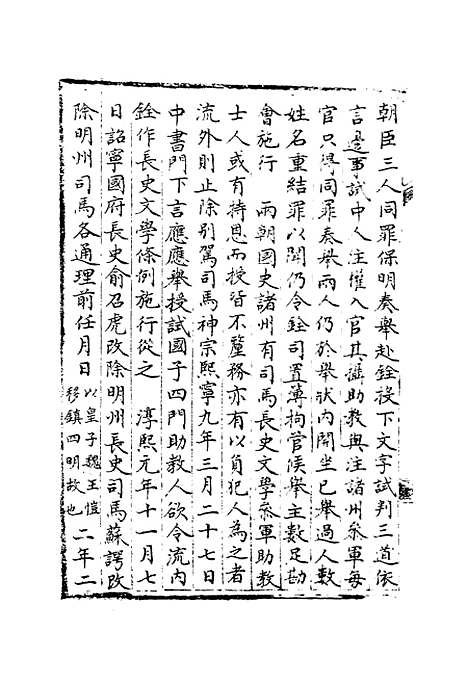 朝臣三人同罪保明奏舉赴銓投下文字試判三道依
言是事試中人注擬入官其攝助教與注諸州叅軍每
官只得同罪奏舉兩人仍於舉狀內開坐已舉過人數
姓名重結罪以聞仍令銓司置簿拘管候舉主數足勘
會施行　兩朝國史諸州有司馬長史文學叅軍助教
士人或有特恩而授皆不釐務亦有以負犯人為之者
流外則止除別駕司馬神宗熙寧九年三月二十七日
中書門下言應應舉授試國子四門助教人欲令流內
銓作長史文學條例施行從之　淳熙元年十一月七
日詔寧國府長史俞召虎改除明州長史司馬蘇諤改
除明州司馬各通理前任月日以皇子魏王愷移鎮四明故也二年二